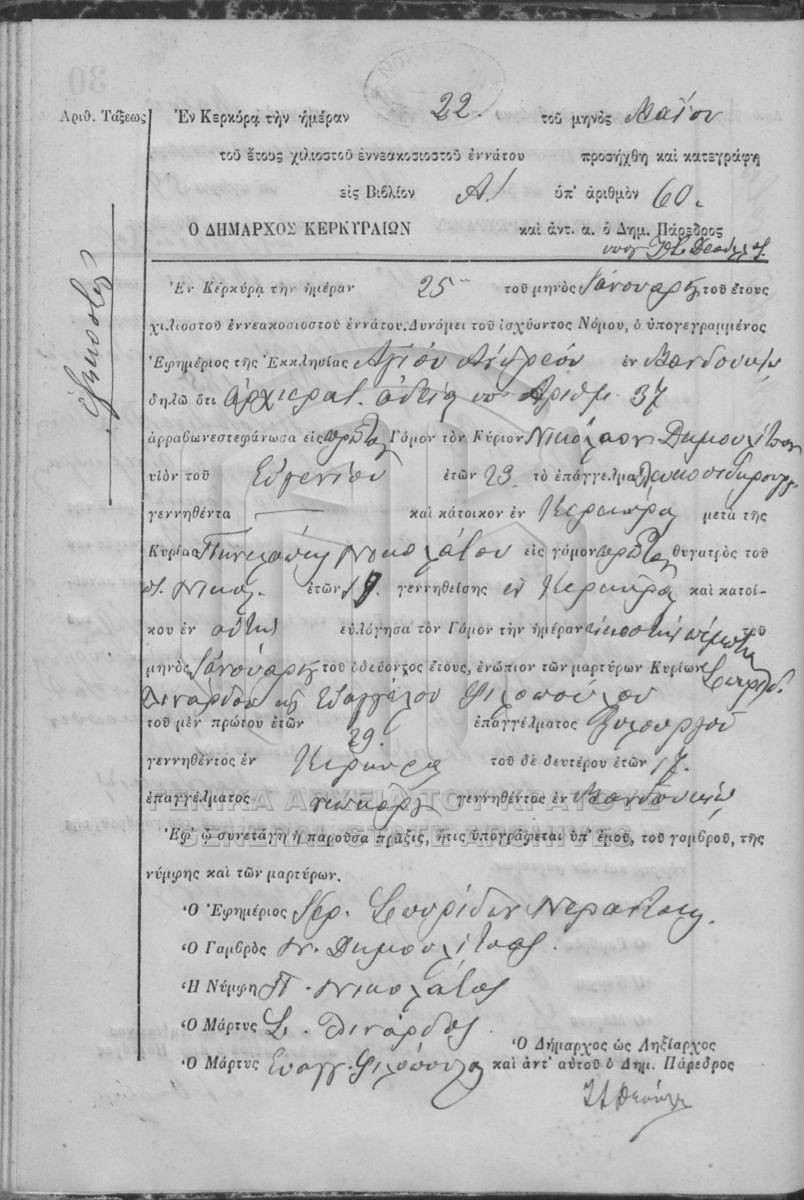 Ἀριθ. Τάξεως
Ἐν Κερκύρᾳ τὴν ἡμέραν 22. τοῦ μηνὸς Μαΐου
τοῦ ἔτους χιλιοστοῦ ἐννεακοσιοστοῦ ἐννάτου προσήχθη καὶ κατεγράφη
εἰς Βιβλίον Α/ ὑπ' ἀριθμὸν 60.
Ο ΔΗΜΑΡΧΟΣ ΚΕΡΚΥΡΑΙΩΝ καὶ ἀντ. α. ὁ Δημ. Πάρεδρος
Ἐν Κερκύρᾳ τὴν ἡμέραν 25 τοῦ μηνὸς Ἰανουαρίου τοῦ ἔτους
χιλιοστοῦ ἐννεακοσιοστοῦ ἐννάτου. Δυνάμει τοῦ ἰσχύοντος Νόμου, ὁ ὑπογεγραμμένος
Ἐφημέριος τῆς Ἐκκλησίας Ἁγίου Ἀνδρέου ἐν Μανδουκίῳ
δηλῶ ὅτι ἀρχιερατ. ἀδείᾳ ὑπ' Ἀριθμ. 37
ἀρραβωνεστεφάνωσα εἰς πρῶτον Γάμον τὸν Κύριον Νικόλαον
υἱὸν τοῦ Εὐγενίου ἐτῶν 23 τὸ ἐπάγγελμα
γεννηθέντα — καὶ κάτοικον ἐν Κερκύρᾳ μετὰ τῆς
Κυρίας Πηνελόπης Νικολάτου εἰς γάμον πρῶτον θυγατρὸς τοῦ
Νικολ. ἐτῶν 19. γεννηθείσης ἐν Κερκύρᾳ καὶ κατοί-
κου ἐν αὐτῇ εὐλόγησα τὸν Γάμον τὴν ἡμέραν εἰκοστὴν πέμπτην τοῦ
μηνὸς Ἰανουαρίου τοῦ ὁδεύοντος ἔτους, ἐνώπιον τῶν μαρτύρων Κυρίων Σπυρίδ.
Δινάρδου καὶ Εὐαγγέλου Φιλοπούλου
τοῦ μὲν πρώτου ἐτῶν 29. ἐπαγγέλματος ξυλουργοῦ
γεννηθέντος ἐν Κερκύρᾳ τοῦ δὲ δευτέρου ἐτῶν 17.
ἐπαγγέλματος γεννηθέντος ἐν Μανδουκίῳ
ΓΕΝΙΚΑ ΑΡΧΕΙΑ ΤΟΥ ΚΡΑΤΟΥΣ
Ἐφ' ᾧ συνετάγη ἡ παροῦσα πρᾶξις, ἥτις ὑπογράφεται ὑπ' ἐμοῦ, τοῦ γαμβροῦ, τῆς
GENERAL STATE ARCHIVES
νύμφης καὶ τῶν μαρτύρων.
Ὁ Ἐφημέριος Ἱερ. Σπυρίδων
Ὁ Γαμβρὸς Ν.
Ἡ Νύμφη Π. Νικολάτος
Ὁ Μάρτυς Σ. Δινάρδος
Ὁ Δήμαρχος ὡς Ληξίαρχος
Ὁ Μάρτυς Εὐαγγ. Φιλόπουλος καὶ ἀντ' αὐτοῦ ὁ Δημ. Πάρεδρος